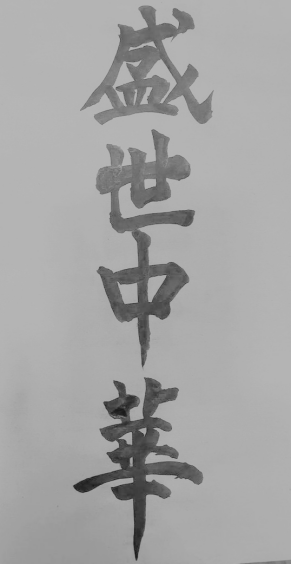 盛世中華